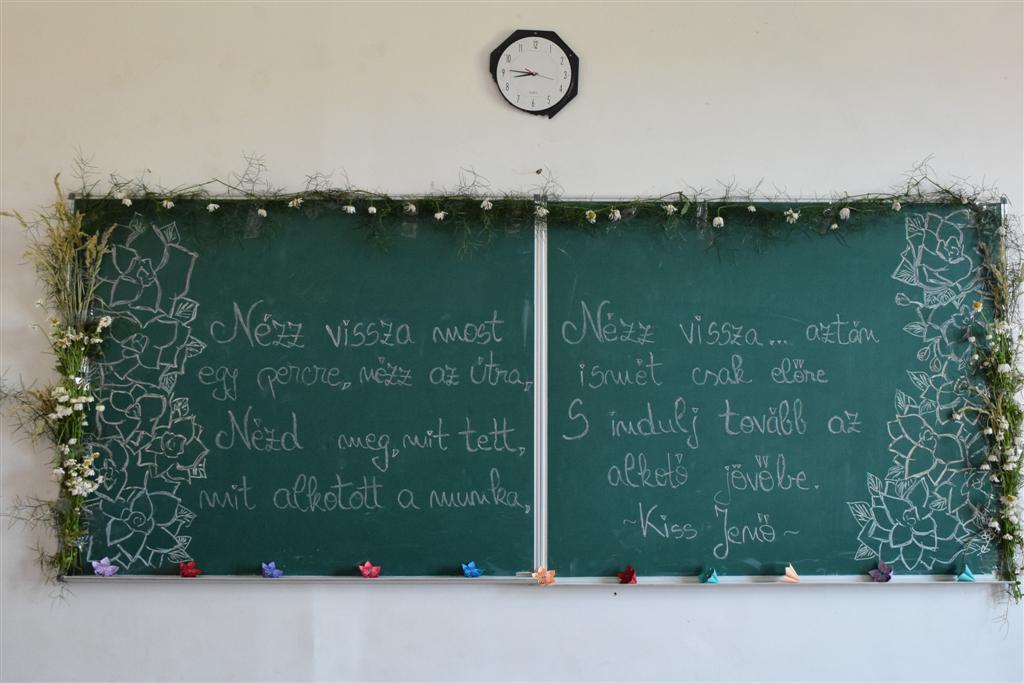 Nézz vissza most
egy percre, nézz az útra,
Nézd meg, mit tett,
mit alkotott a munka,
Nézz vissza... aztán
ismét csak előre
S indulj tovább az
alkotó jövőbe.
~Kiss Jenő~